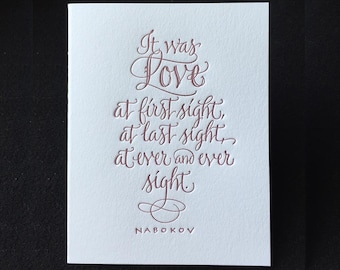 It was
Love
at first sight,
at last sight,
at ever and ever
sight
NABOKOV